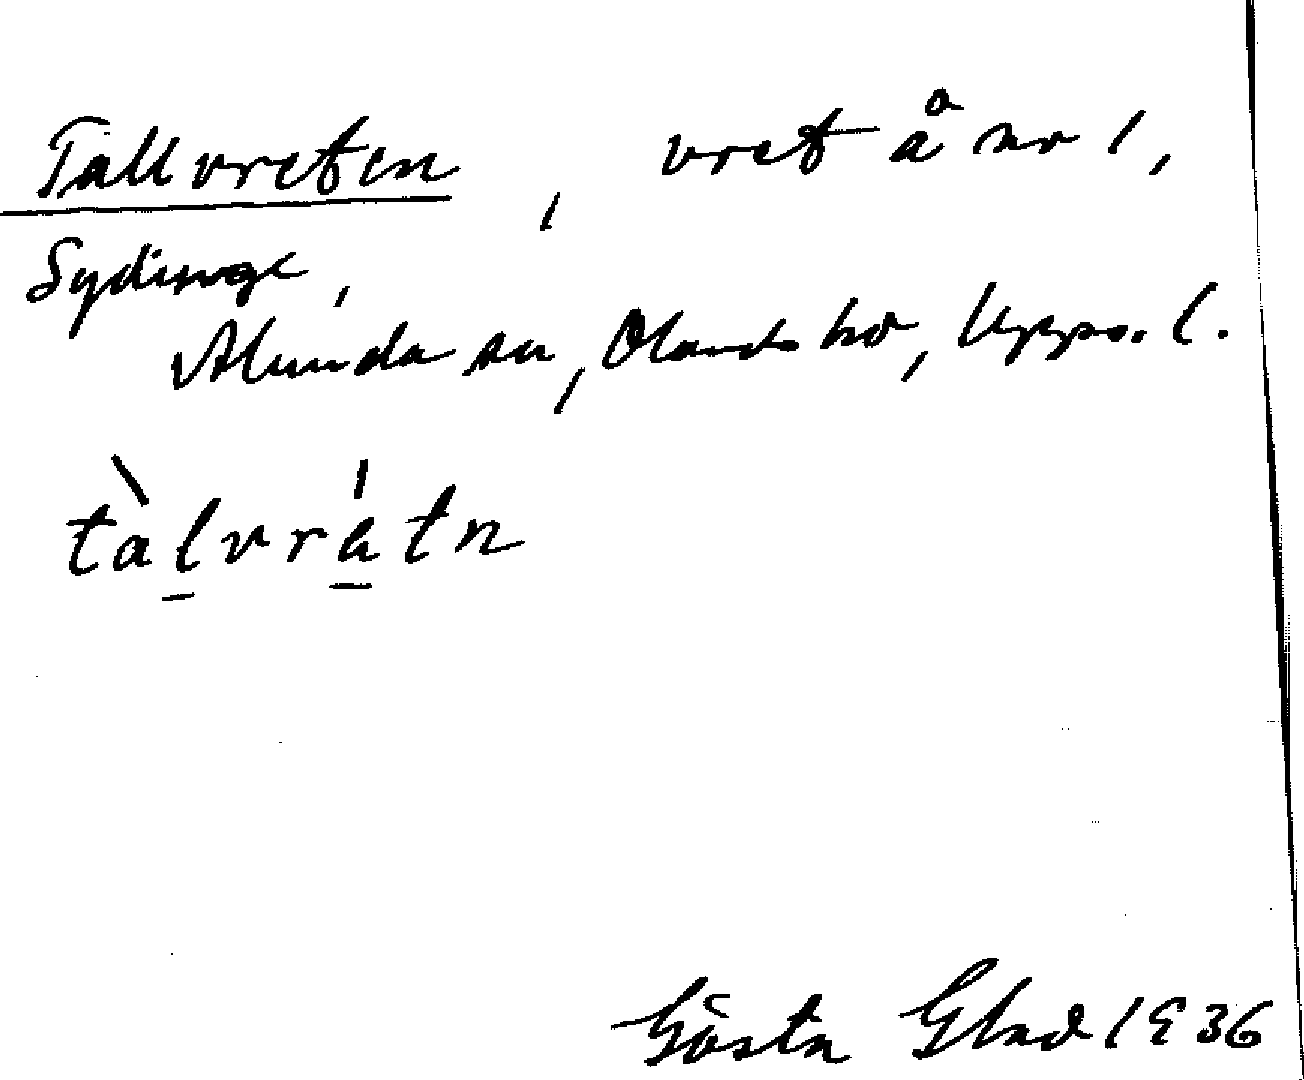 Tallvreten, vret å nr 1,
Sydinge,
Alunda sn, Olands hd, Upps. l.
tàlvràtn
Gösta Glad 1936